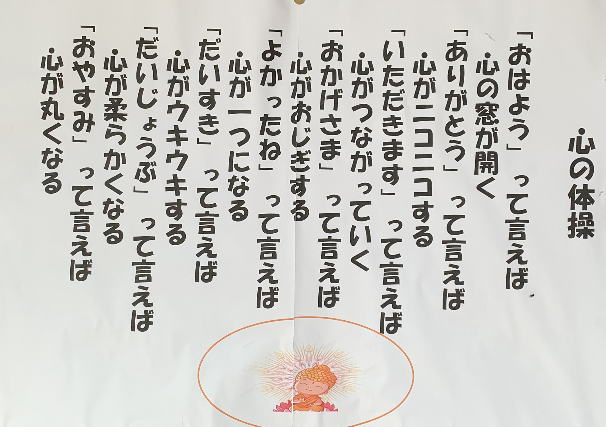 心の体操
「おはよう」って言えば
心の窓が開く
「ありがとう」って言えば
心がニコニコする
「いただきます」って言えば
心がつながっていく
「おかげさま」って言えば
心がおじぎする
「よかったね」って言えば
心が一つになる
「だいすき」って言えば
心がウキウキする
「だいじょうぶ」って言えば
心が柔らかくなる
「おやすみ」って言えば
心が丸くなる